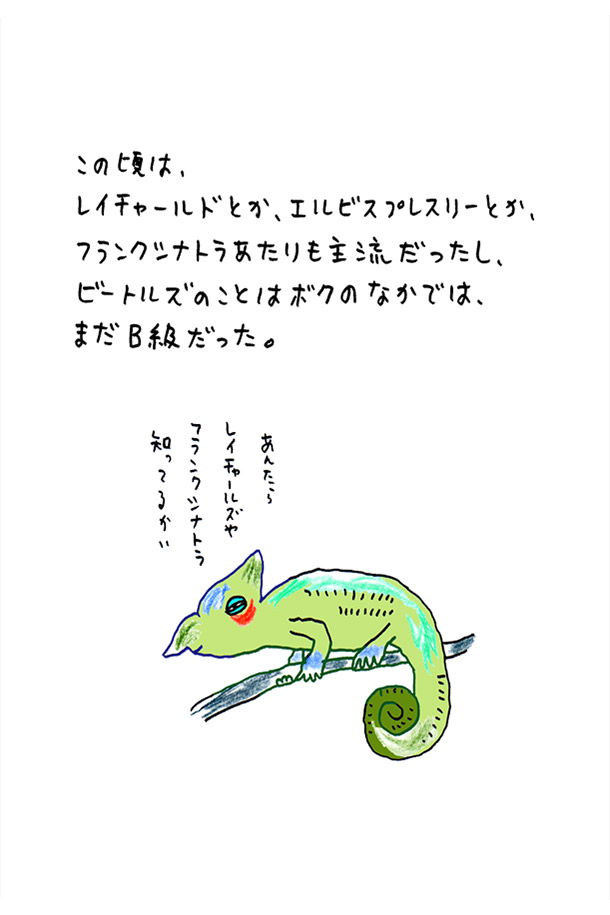 この頃は、
レイチャールドとか、エルビスプレスリーとか、
フランクシナトラあたりも主流だったし、
ビートルズのことはボクのなかでは、
まだB級だった。
あんたら
レイチャールズや
フランクシナトラ
知ってるかい